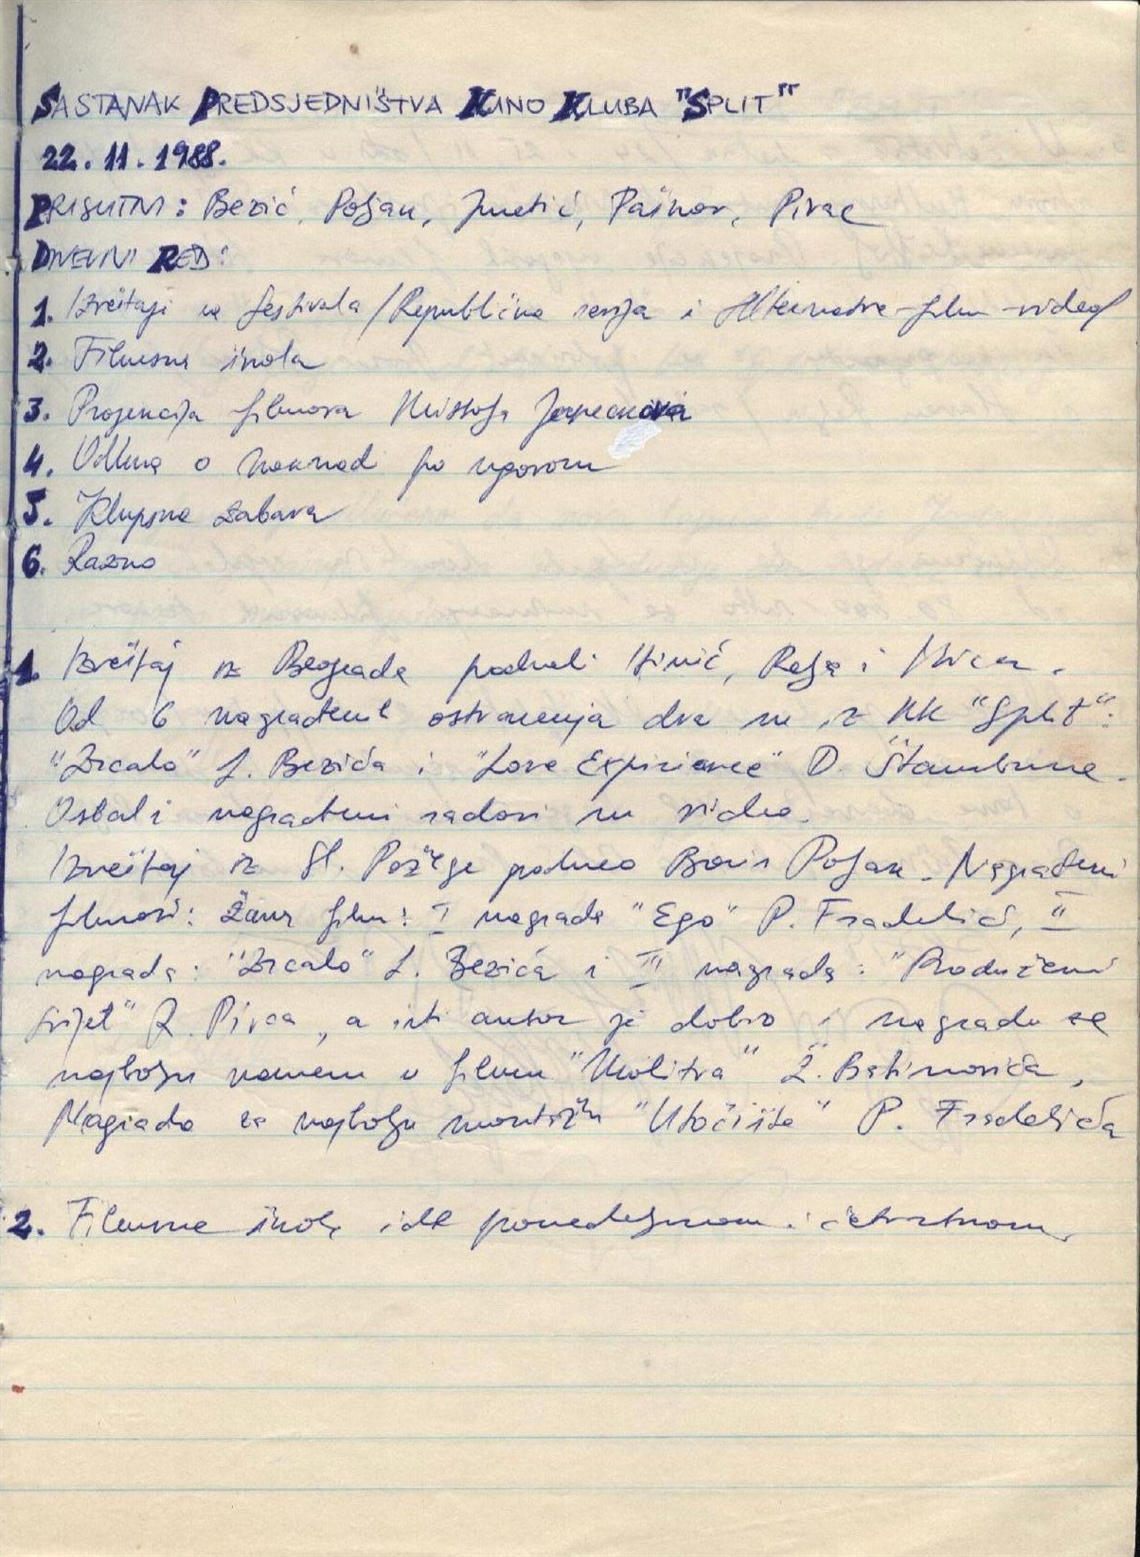 SASTANAK PREDSJEDNIŠTVA KINO KLUBA "SPLIT"
22.11.1988.
PRISUTNI: Bezić, Poljak, Jmetić, Pašnov, Pivac
DNEVNI RED:
1. Izvještaji sa festivala /Republička revija i Alternative-film-video/
2. Filmska škola
3. Projekcija filmova Kristofa
4. Odluka o naknadi po ugovoru
5. Klupska zabava
6. Razno
1. Izvještaj iz Beograda podneli Hinić, Relja i
Od 6 nagrađenih ostvarenja dva su iz KK "Split":
"Zrcalo" L. Bezića i "Love Expirience" D. Štambuka.
Ostali nagrađeni radovi su video.
Izvještaj iz Sl. Požege podneo Boris Poljak. Nagrađeni
filmovi: Žanr film: I nagrada "Ego" P. Fradelić, II
nagrada: "Zrcalo" L. Bezića i III nagrada: "Produženi
svijet" R. Pivca, a isti autor je dobio i nagradu za
najbolju kameru u filmu "Molitva" Ž. Batinovića,
Nagrada za najbolju montažu "Utočište" P. Fradelića
2. Filmska škola ide ponedeljkom i četvrtkom